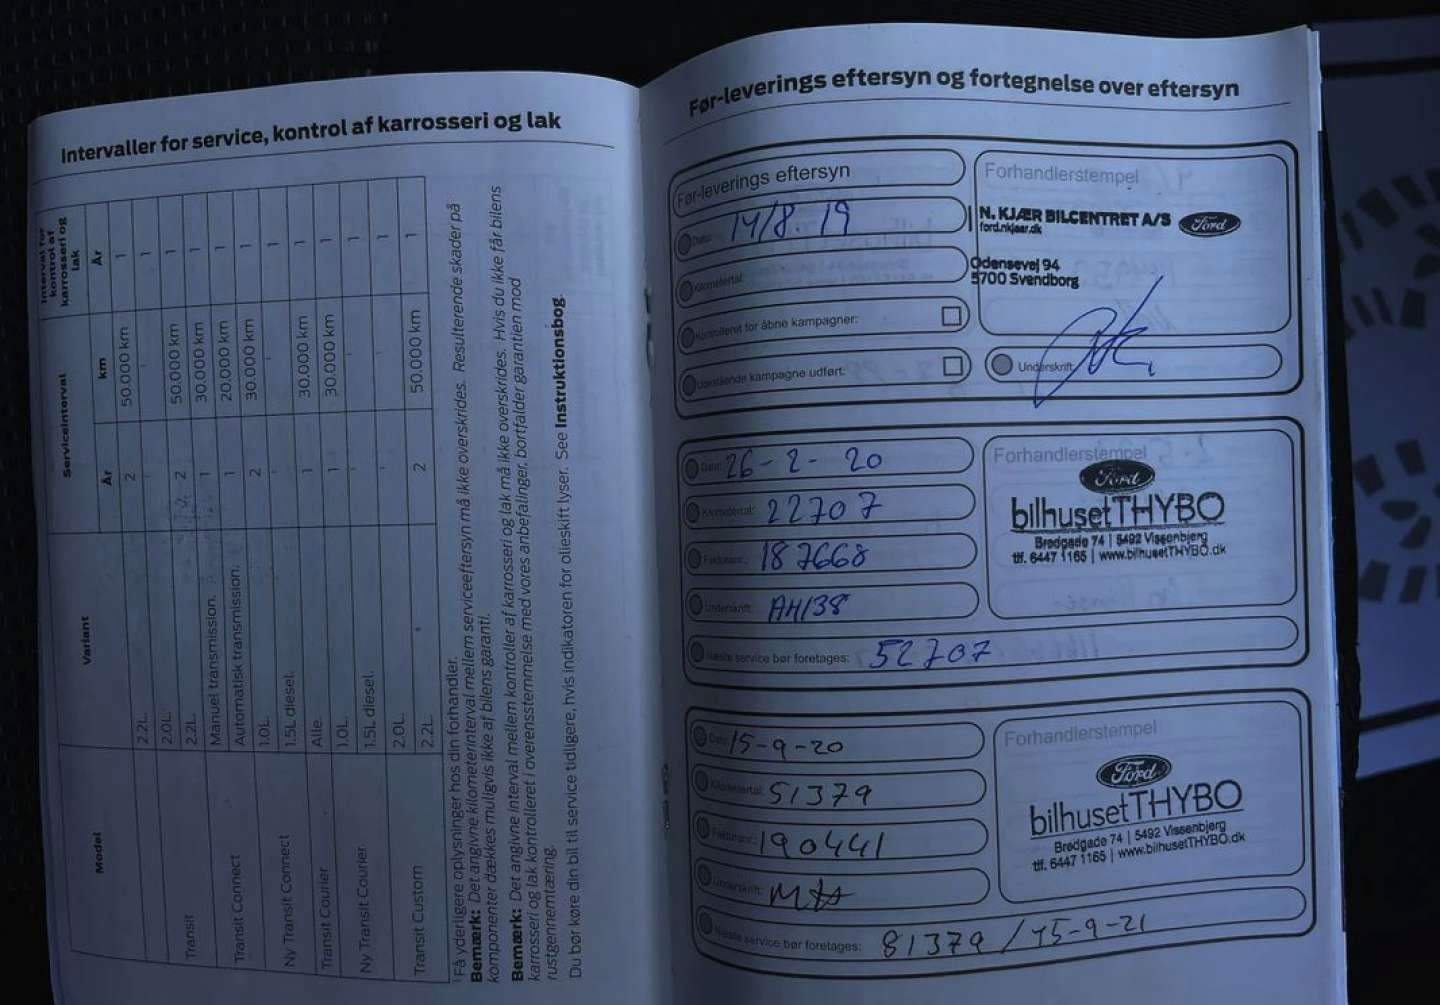 Intervaller for service, kontrol af karrosseri og lak
Model
Variant
Serviceinterval
Interval for kontrol af karrosseri og lak
År
km
År
2.2L.
2
50.000 km
1
2.0L.
-
-
1
Transit
2.2L.
2
50.000 km
1
Manuel transmission.
1
30.000 km
1
Transit Connect
Automatisk transmission.
1
20.000 km
1
1.0L.
2
30.000 km
1
Ny Transit Connect
1.5L diesel.
-
-
1
Transit Courier
Alle.
1
30.000 km
1
1.0L.
1
30.000 km
1
Ny Transit Courier
1.5L diesel.
-
-
1
2.0L.
-
-
1
Transit Custom
2.2L.
2
50.000 km
1
¹ Få yderligere oplysninger hos din forhandler.
Bemærk: Det angivne kilometerinterval mellem serviceeftersyn må ikke overskrides. Resulterende skader på
komponenter dækkes muligvis ikke af bilens garanti.
Bemærk: Det angivne interval mellem kontroller af karrosseri og lak må ikke overskrides. Hvis du ikke får bilens
karrosseri og lak kontrolleret i overensstemmelse med vores anbefalinger, bortfalder garantien mod
rustgennemtæring.
Du bør køre din bil til service tidligere, hvis indikatoren for olieskift lyser. See Instruktionsbog.
Før-leverings eftersyn og fortegnelse over eftersyn
Før-leverings eftersyn
Dato: 14/8. 19
Kilometertal:
Kontrolleret for åbne kampagner:
Udestående kampagne udført:
Forhandlerstempel
N. KJÆR BILCENTRET A/S
Ford
ford.nkjaer.dk
Odensevej 94
5700 Svendborg
Underskrift:
Dato: 26-2-20
Kilometertal: 22707
Fakturanr.: 187668
Underskrift: AH138
Næste service bør foretages: 52707
Forhandlerstempel
Ford
bilhusetTHYBO
Bredgade 74 | 5492 Vissenbjerg
tlf. 6447 1165 | www.bilhusetTHYBO.dk
Dato: 15-9-20
Kilometertal: 51379
Fakturanr.: 190441
Underskrift:
Næste service bør foretages: 81379 / 15-9-21
Forhandlerstempel
Ford
bilhusetTHYBO
Bredgade 74 | 5492 Vissenbjerg
tlf. 6447 1165 | www.bilhusetTHYBO.dk